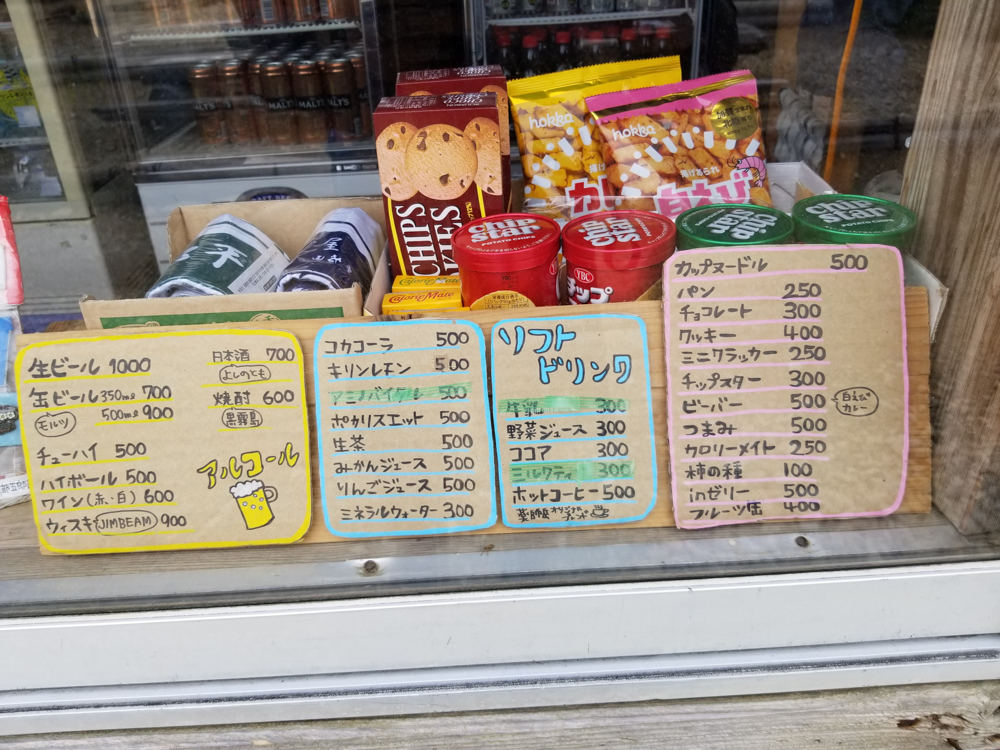 MALT'S
MALT'S
hokka
hokka
揚げあられ
白えび
CHIPS
CHIP STAR
POTATO CHIPS
CHIP STAR
YBC
チップ
CHIP STAR
CHIP STAR
Calorie Mate
生ビール 1000
缶ビール 350ml 700
モルツ 500ml 900
チューハイ 500
ハイボール 500
ワイン(赤・白) 600
ウィスキー JIMBEAM 900
日本酒 700
よしのとも
焼酎 600
黒霧島
アルコール
コカコーラ 500
キリンレモン 500
アミノバイタル 500
ポカリスエット 500
生茶 500
みかんジュース 500
りんごジュース 500
ミネラルウォーター 300
ソフト
ドリンク
牛乳 300
野菜ジュース 300
ココア 300
ミルクティ 300
ホットコーヒー 500
薬師岳オリジナルブレンド
カップヌードル 500
パン 250
チョコレート 300
クッキー 400
ミニクラッカー 250
チップスター 300
ビーバー 500
白えび
カレー
つまみ 500
カロリーメイト 250
柿の種 100
inゼリー 500
フルーツ缶 400